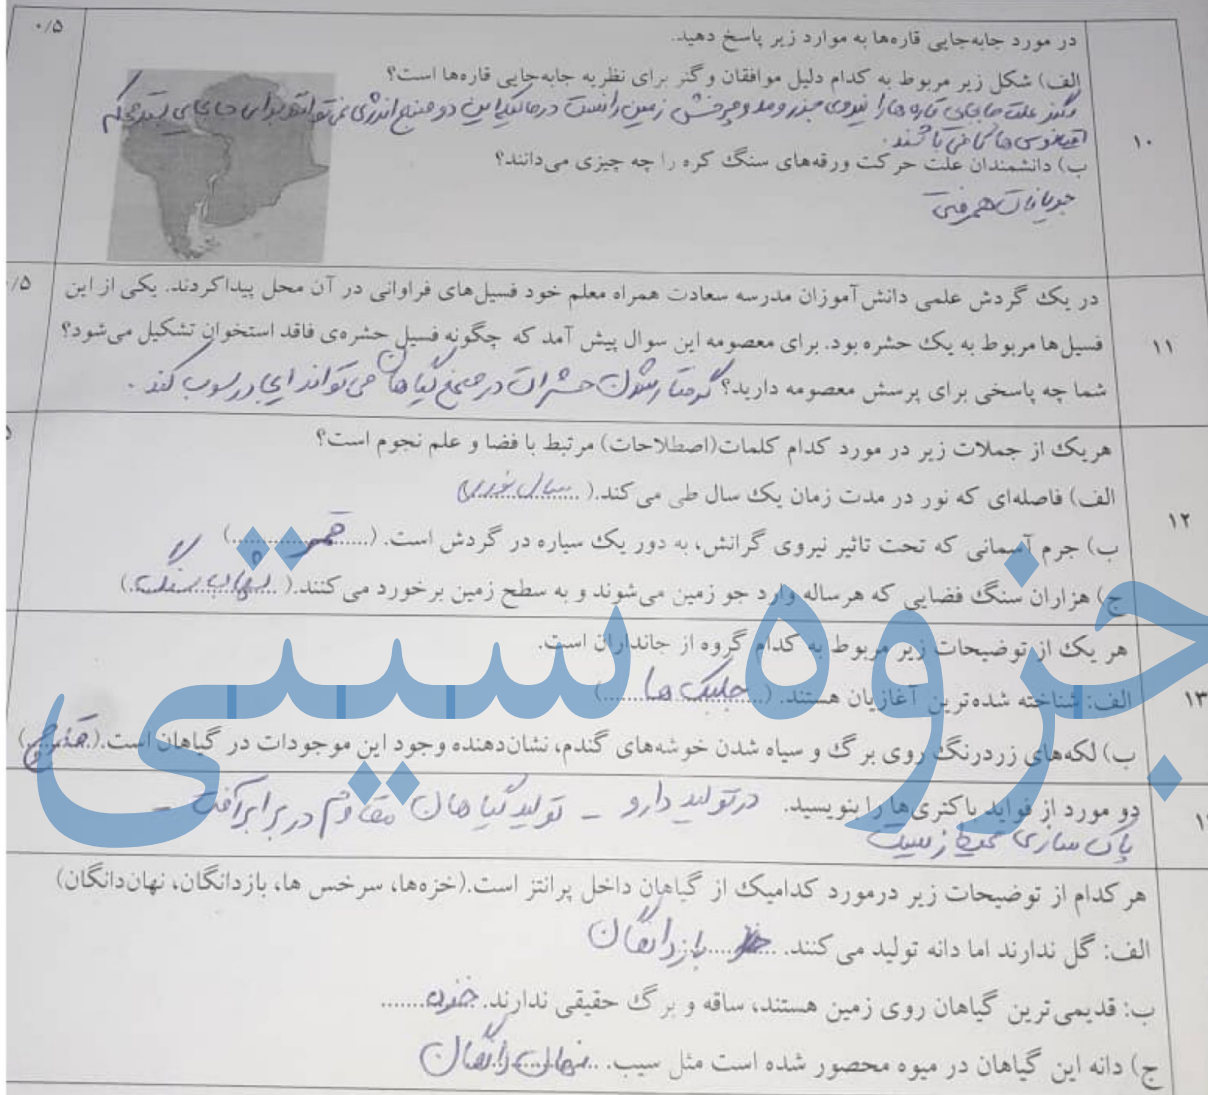 ۰/۵
در مورد جابه‌جایی قاره‌ها به موارد زیر پاسخ دهید.
الف) شکل زیر مربوط به کدام دلیل موافقان وگنر برای نظریه جابه‌جایی قاره‌ها است؟
وگنر علت جابجایی قاره ها را نیروی جزر و مد و چرخش زمین دانست در حالیکه این دو منبع انرژی نمی توانند برای جابجایی بستر محکم
اقیانوس ها کافی باشند.
۱۰
ب) دانشمندان علت حرکت ورقه‌های سنگ کره را چه چیزی می‌دانند؟
جریانات همرفتی
۱۱
در یک گردش علمی دانش‌آموزان مدرسه سعادت همراه معلم خود فسیل‌های فراوانی در آن محل پیداکردند. یکی از این
/۵
فسیل‌ها مربوط به یک حشره بود. برای معصومه این سوال پیش آمد که چگونه فسیل حشره‌ی فاقد استخوان تشکیل می‌شود؟
شما چه پاسخی برای پرسش معصومه دارید؟ گرفتار شدن حشرات در صمغ گیاهان می تواند ایجاد رسوب کند.
هریک از جملات زیر در مورد کدام کلمات(اصطلاحات) مرتبط با فضا و علم نجوم است؟
۱۲
الف) فاصله‌ای که نور در مدت زمان یک سال طی می‌کند.( سال نوری
ب) جرم آسمانی که تحت تاثیر نیروی گرانش، به دور یک سیاره در گردش است. (....قمر....)
ج) هزاران سنگ فضایی که هرساله وارد جو زمین می‌شوند و به سطح زمین برخورد می‌کنند.( شهاب سنگ )
هر یک از توضیحات زیر مربوط به کدام گروه از جانداران است.
۱۳
الف: شناخته شده‌ترین آغازیان هستند. (...جلبک ها...)
ب) لکه‌های زردرنگ روی برگ و سیاه شدن خوشه‌های گندم، نشان‌دهنده وجود این موجودات در گیاهان است.(قارچ)
دو مورد از فواید باکتری‌ها را بنویسید. در تولید دارو - تولید گیاهان مقاوم در برابر آفت -
پاک سازی محیط زیست
هرکدام از توضیحات زیر درمورد کدامیک از گیاهان داخل پرانتز است.(خزه‌ها، سرخس ها، بازدانگان، نهان‌دانگان)
الف: گل ندارند اما دانه تولید می‌کنند. بازدانگان
ب: قدیمی‌ترین گیاهان روی زمین هستند، ساقه و برگ حقیقی ندارند. خزه
ج) دانه این گیاهان در میوه محصور شده است مثل سیب. نهان دانگان
جزوه سیتی